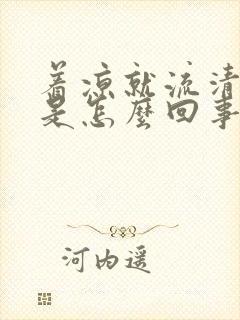 着凉就流清
是怎麼回事
河内遥